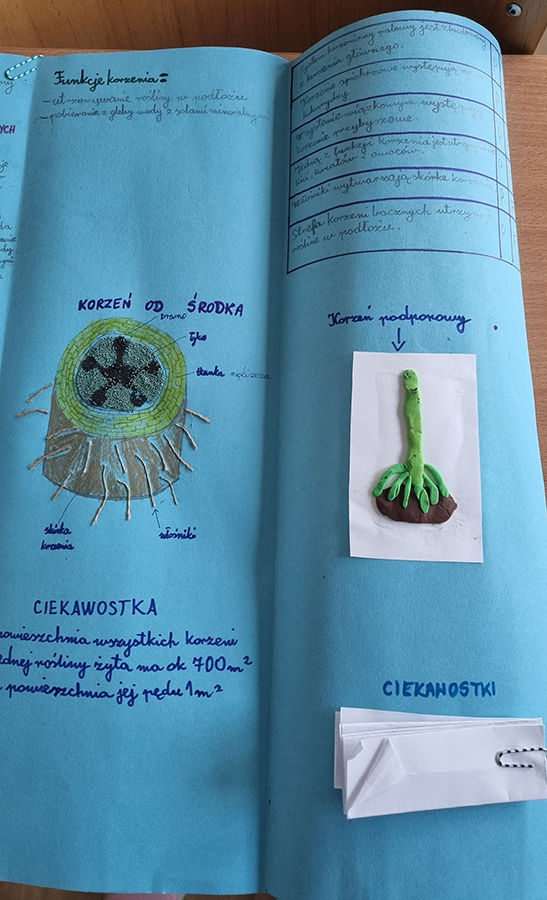 Funkcje korzenia:
- utrzymywanie rośliny w podłożu
- pobieranie z gleby wody z solami mineralnymi
KORZEŃ OD ŚRODKA
drewno
łyko
tkanka miękiszowa
skórka
korzenia
włośniki
CIEKAWOSTKA
powierzchnia wszystkich korzeni
jednej rośliny żyta ma ok 700m²
powierzchnia jej pędu 1m²
System korzeniowy palowy jest zbudowany
z korzenia głównego.
Korzenie spichrzowe występują
kukurydzy
W systemie wiązkowym występują
korzenie przybyszowe.
Jedną z funkcji korzenia jest
liści, kwiatów i owoców.
Włośniki wytwarzają skórkę korzenia
Strefa korzeni bocznych utrzymuje
roślinę w podłożu.
Korzeń podporowy
CIEKAWOSTKI